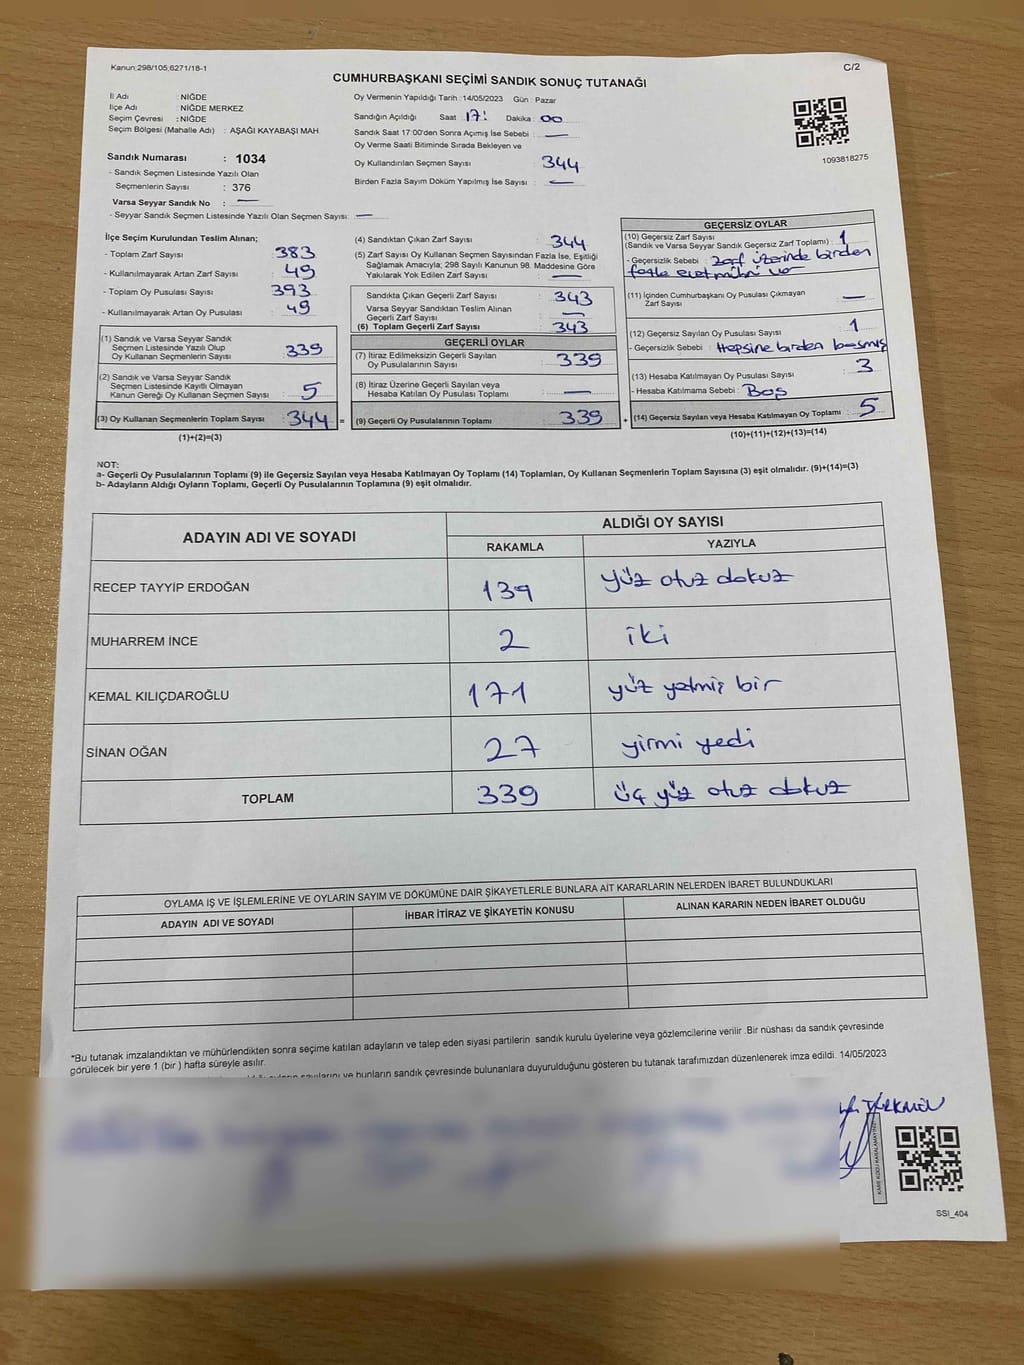 Kanun;298/105;6271/18-1
C/2
CUMHURBAŞKANI SEÇİMİ SANDIK SONUÇ TUTANAĞI
İl Adı : NİĞDE
İlçe Adı : NİĞDE MERKEZ
Seçim Çevresi : NİĞDE
Seçim Bölgesi (Mahalle Adı) : AŞAĞI KAYABAŞI MAH.
Sandık Numarası : 1034
- Sandık Seçmen Listesinde Yazılı Olan
Seçmenlerin Sayısı : 376
Varsa Seyyar Sandık No : —
- Seyyar Sandık Seçmen Listesinde Yazılı Olan Seçmen Sayısı: —
Oy Vermenin Yapıldığı Tarih :14/05/2023 Gün : Pazar
Sandığın Açıldığı Saat 17: Dakika : 00
Sandık Saat 17:00'den Sonra Açımış İse Sebebi : —
Oy Verme Saati Bitiminde Sırada Bekleyen ve
Oy Kullandırılan Seçmen Sayısı : 344
Birden Fazla Sayım Döküm Yapılmış İse Sayısı : —
1093818275
İlçe Seçim Kurulundan Teslim Alınan;
- Toplam Zarf Sayısı : 383
- Kullanılmayarak Artan Zarf Sayısı : 49
- Toplam Oy Pusulası Sayısı : 393
- Kullanılmayarak Artan Oy Pusulası : 49
(1) Sandık ve Varsa Seyyar Sandık
Seçmen Listesinde Yazılı Olup
Oy Kullanan Seçmenlerin Sayısı : 339
(2) Sandık ve Varsa Seyyar Sandık
Seçmen Listesinde Kayıtlı Olmayan
Kanun Gereği Oy Kullanan Seçmen Sayısı : 5
(3) Oy Kullanan Seçmenlerin Toplam Sayısı : 344 =
(1)+(2)=(3)
(4) Sandıktan Çıkan Zarf Sayısı : 344
(5) Zarf Sayısı Oy Kullanan Seçmen Sayısından Fazla İse, Eşitliği
Sağlamak Amacıyla; 298 Sayılı Kanunun 98. Maddesine Göre
Yakılarak Yok Edilen Zarf Sayısı : —
Sandıkta Çıkan Geçerli Zarf Sayısı : 343
Varsa Seyyar Sandıktan Teslim Alınan
Geçerli Zarf Sayısı : —
(6) Toplam Geçerli Zarf Sayısı : 343
GEÇERLİ OYLAR
(7) İtiraz Edilmeksizin Geçerli Sayılan
Oy Pusulalarının Sayısı : 339
(8) İtiraz Üzerine Geçerli Sayılan veya
Hesaba Katılan Oy Pusulası Toplamı : —
(9) Geçerli Oy Pusulalarının Toplamı : 339 +
GEÇERSİZ OYLAR
(10) Geçersiz Zarf Sayısı : 1
(Sandık ve Varsa Seyyar Sandık Geçersiz Zarf Toplamı)
- Geçersizlik Sebebi : Zarf üzerinde birden
fazla evet mührü var
(11) İçinden Cumhurbaşkanı Oy Pusulası Çıkmayan
Zarf Sayısı : —
(12) Geçersiz Sayılan Oy Pusulası Sayısı : 1
- Geçersizlik Sebebi : Hepsine birden basmış
(13) Hesaba Katılmayan Oy Pusulası Sayısı : 3
- Hesaba Katılmama Sebebi : Boş
(14) Geçersiz Sayılan veya Hesaba Katılmayan Oy Toplamı : 5
(10)+(11)+(12)+(13)=(14)
NOT:
a- Geçerli Oy Pusulalarının Toplamı (9) ile Geçersiz Sayılan veya Hesaba Katılmayan Oy Toplamı (14) Toplamları, Oy Kullanan Seçmenlerin Toplam Sayısına (3) eşit olmalıdır. (9)+(14)=(3)
b- Adayların Aldığı Oyların Toplamı, Geçerli Oy Pusulalarının Toplamına (9) eşit olmalıdır.
ADAYIN ADI VE SOYADI
ALDIĞI OY SAYISI
RAKAMLA YAZIYLA
RECEP TAYYİP ERDOĞAN 139 yüz otuz dokuz
MUHARREM İNCE 2 iki
KEMAL KILIÇDAROĞLU 171 yüz yetmiş bir
SİNAN OĞAN 27 yirmi yedi
TOPLAM 339 üç yüz otuz dokuz
OYLAMA İŞ VE İŞLEMLERİNE VE OYLARIN SAYIM VE DÖKÜMÜNE DAİR ŞİKAYETLERLE BUNLARA AİT KARARLARIN NELERDEN İBARET BULUNDUKLARI
ADAYIN ADI VE SOYADI İHBAR İTİRAZ VE ŞİKAYETİN KONUSU ALINAN KARARIN NEDEN İBARET OLDUĞU
*Bu tutanak imzalandıktan ve mühürlendikten sonra seçime katılan adayların ve talep eden siyasi partilerin sandık kurulu üyelerine veya gözlemcilerine verilir .Bir nüshası da sandık çevresinde
görülecek bir yere 1 (bir ) hafta süreyle asılır.
sayılarını ve bunların sandık çevresinde bulunanlara duyurulduğunu gösteren bu tutanak tarafımızdan düzenlenerek imza edildi. 14/05/2023
TÜRKMEN
KARE KODU KARALAMAYINIZ
SSI_404